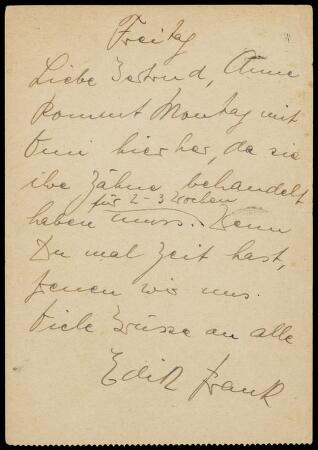 Freitag
Liebe Gertrud, Anne
kommt Montag mit
Omi hierher, da sie
ihre Zähne behandelt
für 2-3 Wochen
haben muss. Wenn
Du mal Zeit hast,
freuen wir uns.
Viele Grüsse an alle
Edith Frank